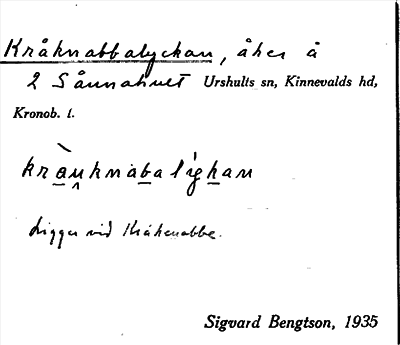 Kråknabbalyckan, åker å
2 Sånnahult Urshults sn, Kinnevalds hd,
Kronob. l.
kràu̯knabalýckan
Ligger vid Kråkenabbe.
Sigvard Bengtson, 1935